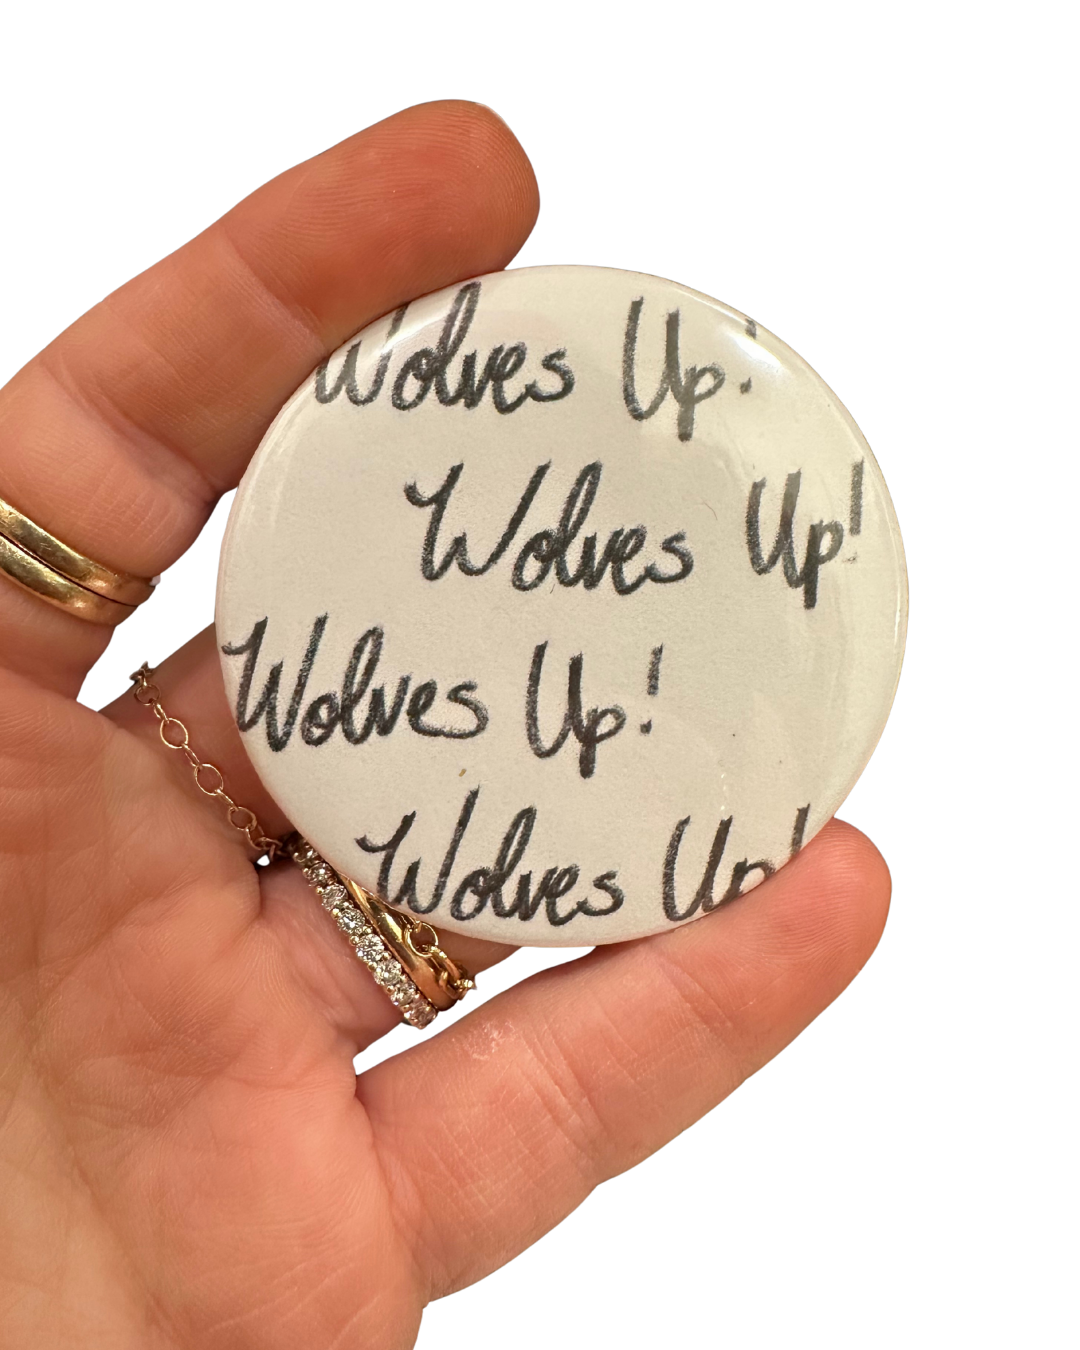 Wolves Up!
Wolves Up!
Wolves Up!
Wolves Up!